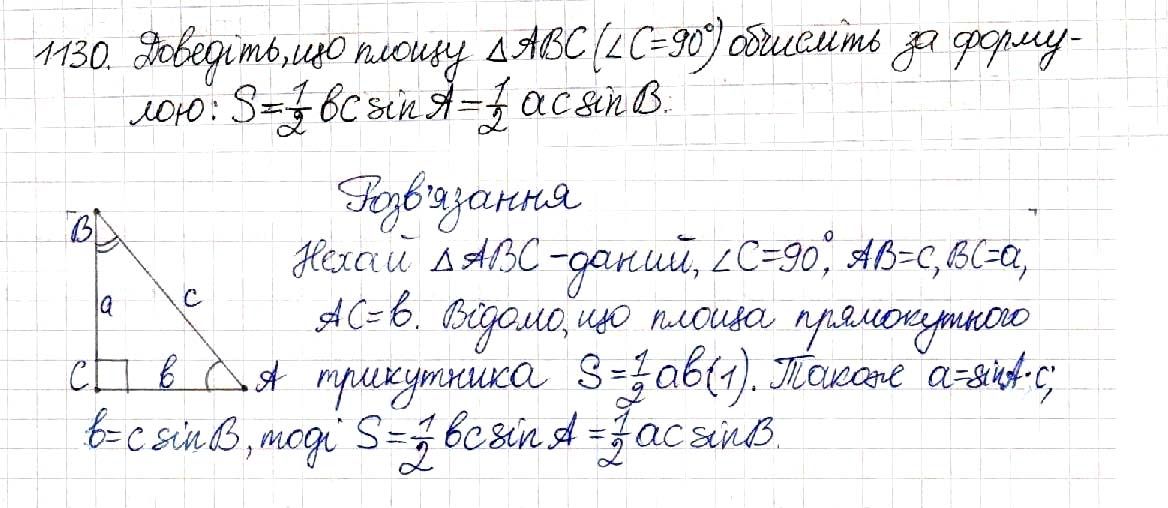 1130. Доведіть, що площу △ABC (∠C=90°) обчисліть за форму-
лою: S=1/2 bc sin A = 1/2 ac sin B.
Розв'язання
B
Нехай △ABC – даний, ∠C=90°, AB=c, BC=a,
a c
AC=b. Відомо, що площа прямокутного
C b A
трикутника S=1/2 ab (1). Також a=sinA·c;
b=c sin B, тоді S=1/2 bc sin A = 1/2 ac sin B.